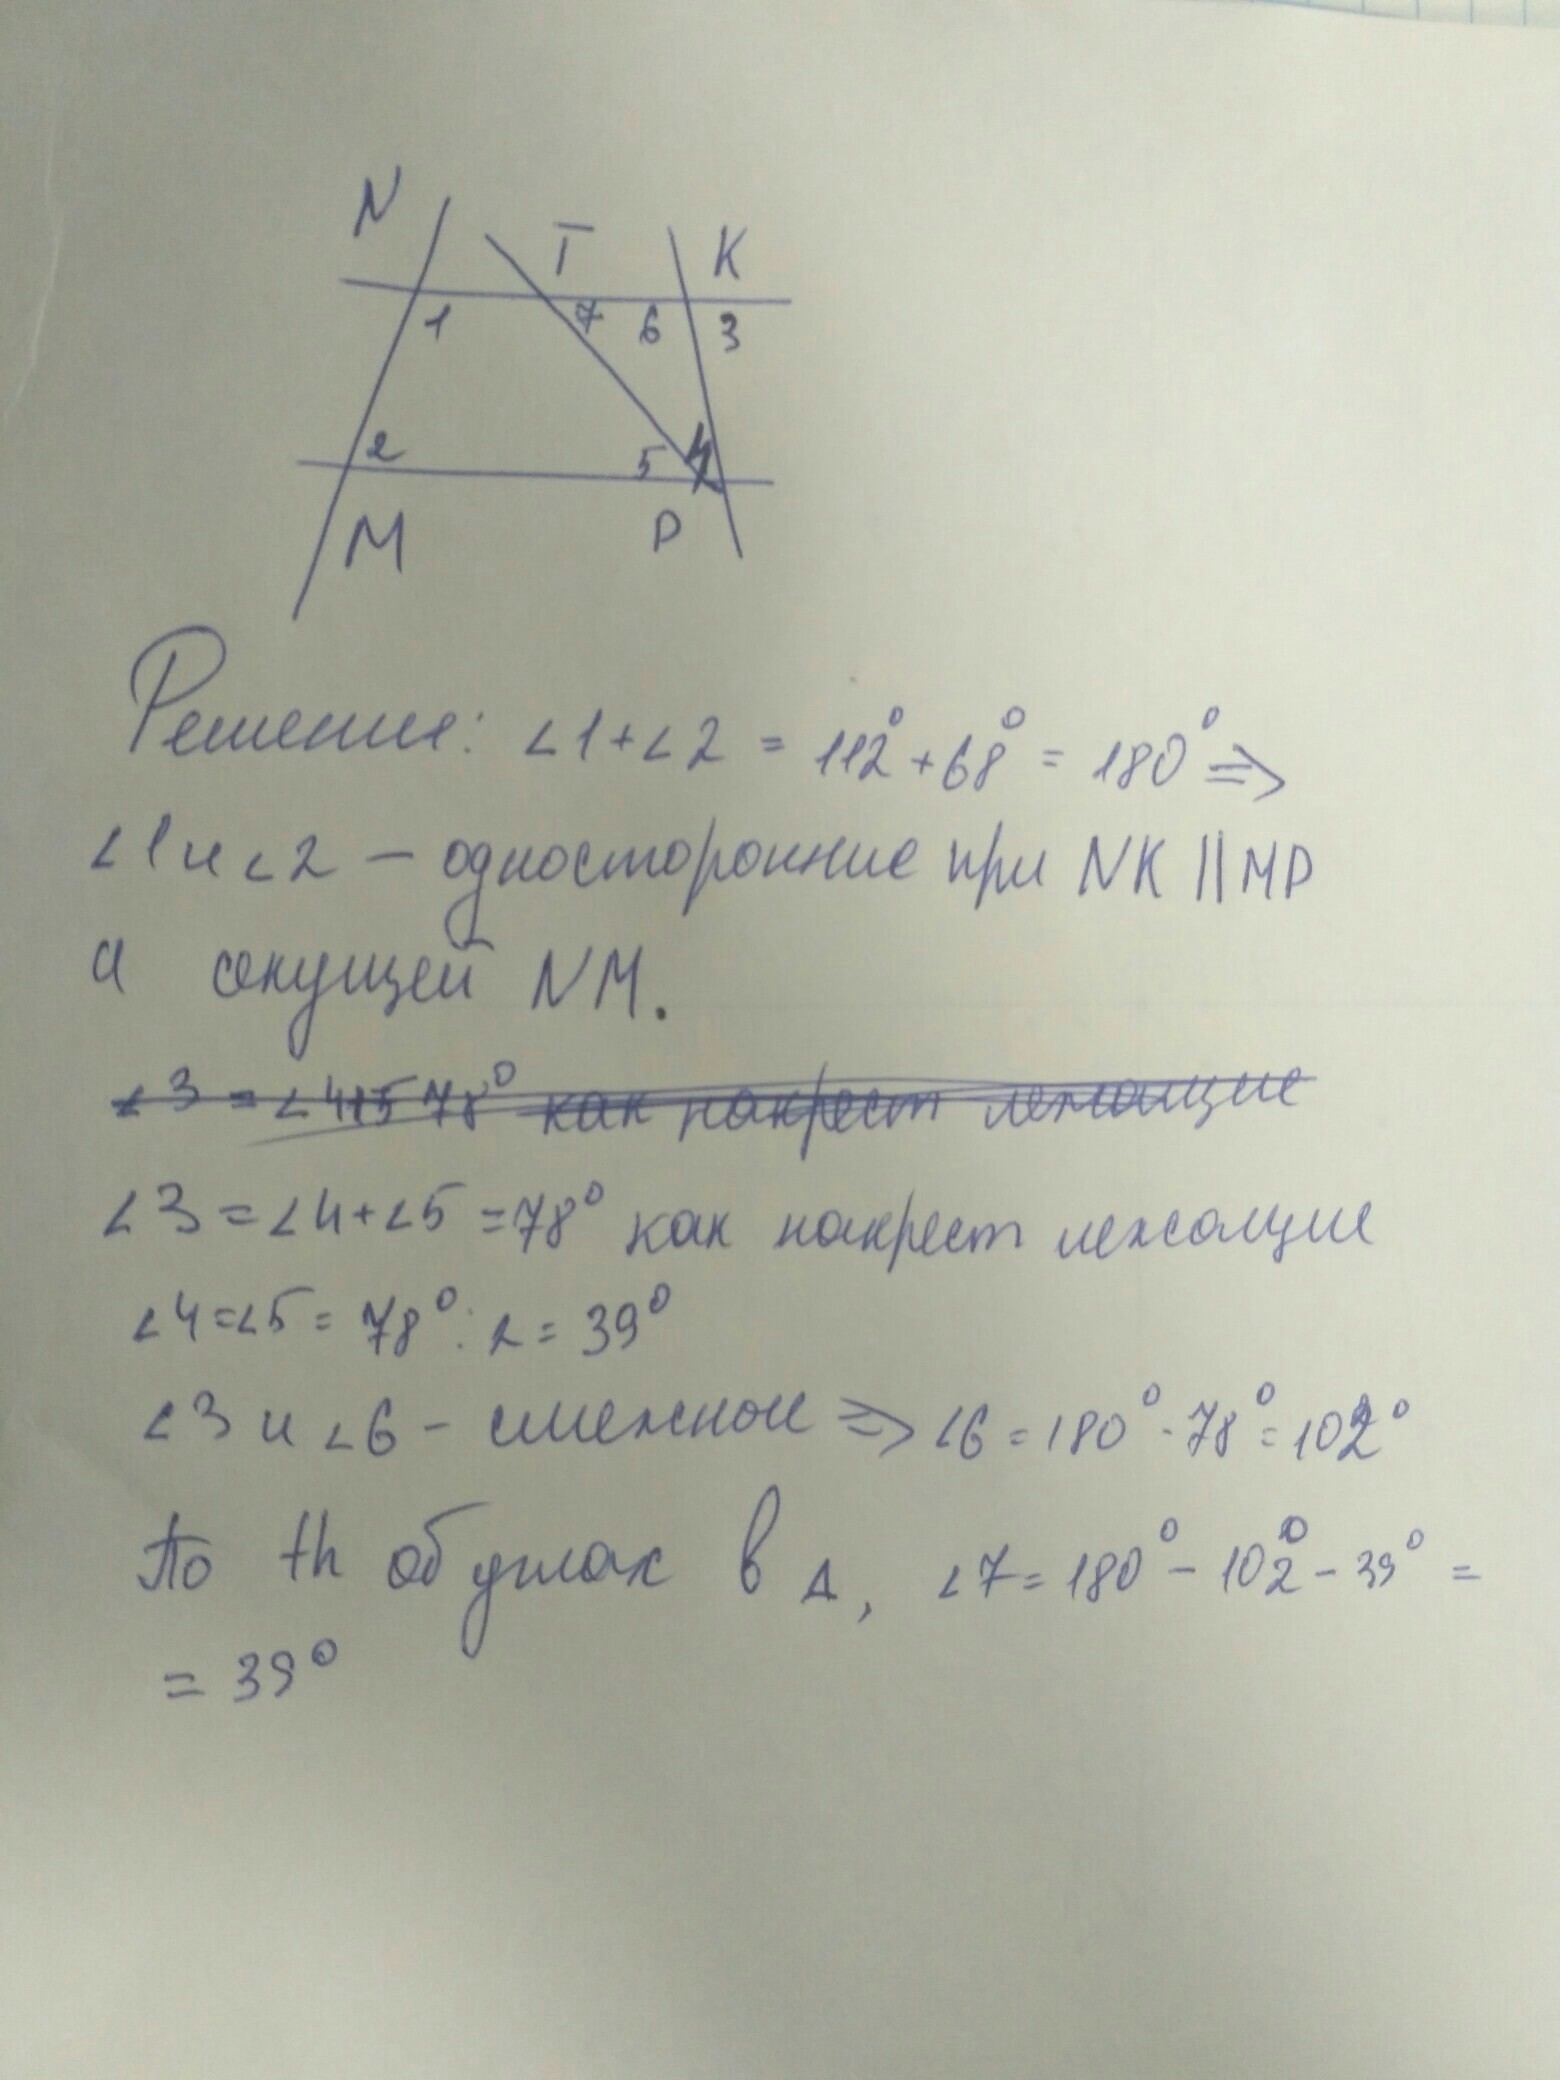 N T K
1 7 6 3
2 5 4
M P
Решение: ∠1+∠2 = 112° + 68° = 180° ⇒
∠1 и ∠2 – односторонние при NK || MP
а секущей NM.
∠3 = ∠4+5 78° как накрест лежащие
∠3 = ∠4+∠5 = 78° как накрест лежащие
∠4=∠5= 78° : 2 = 39°
∠3 и ∠6 - смежные ⇒ ∠6 = 180° - 78° = 102°
По th об углах в Δ, ∠7 = 180° - 102° - 39° =
= 39°